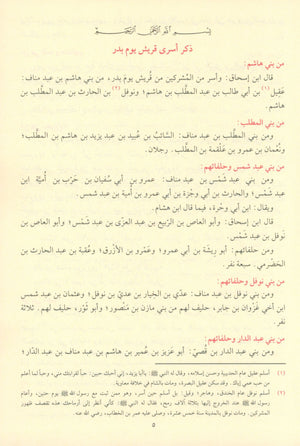 بسم الله الرحمن الرحيم
ذكر أسرى قريش يوم بدر
من بني هاشم:
قال ابن إسحاق: وأسر من المشركين من قُريش يومَ بدر، من بني هاشم بن عبد مناف:
عَقِيل(١) بن أبي طالب بن عبد المطَّلب بن هاشم؛ ونَوفل(٢) بن الحارث بن عبد المطَّلب بن
هاشم.
من بني المطلب:
ومن بني المطَّلب بن عبد مناف: السَّائبُ بن عُبيد بن عبد يزيد بن هاشم بن المطَّلب؛
ونُعْمان بن عمرو بن عَلْقمة بن المطَّلب. رجلان.
من بني عبد شمس وحلفائهم:
ومن بني عبد شَمْس بن عبد مناف: عمرو بن أبي سُفيان بن حَرْب بن أُميَّة ابن
عبد شَمْس؛ والحارث بن أبي وجْزة بن أبي عمرو بن أُمية بن عبد شمس.
ويقال: ابن أبي وحْرة، فيما قال ابن هشام.
قال ابن إسحاق: وأبو العاص بن الرَّبيع بن عبد العزّى بن عبد شَمْس؛ وأبو العاص بن
نَوفل بن عبد شمس.
ومن حلفائهم: أبو ريشة بن أبي عمرو؛ وعَمْرو بن الأَزْرق؛ وعُقبة بن عبد الحارث بن
الحَضْرمي. سبعة نفر.
من بني نوفل وحلفائهم:
ومن بني نوفل بن عبد مناف: عديّ بن الخِيار بن عديّ بن نوفل؛ وعثمان بن عبد شمس
ابن أخي غَزْوان بن جابر، حليف لهم من بني مازن بن مَنْصور؛ وأبو ثَوْر، حليف لهم. ثلاثة
نفر.
من بني عبد الدار وحلفائهم:
ومن بني عبد الدار بن قُصيّ: أبو عزيز بن عُمير بن هاشم بن عبد مناف بن عبد الدَّار؛
(١) أسلم عقيل عام الحديبية وحسن إسلامه، وقال له النبي ﷺ:
(٢) أسلم نوفل عام الخندق، وهاجر؛ وقيل: بل أسلم حين أسر،
٥